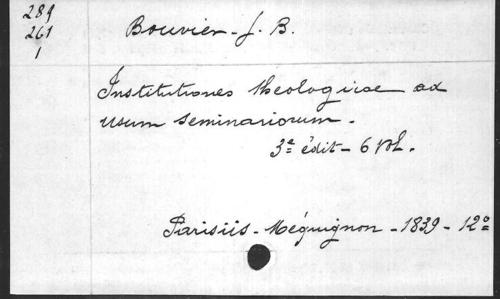 289
261
1
Bouvier - J. B.
Institutiones theologicae ad
usum seminariorum.
3e édit - 6 vol.
Parisiis - Méquignon - 1839 - 12º